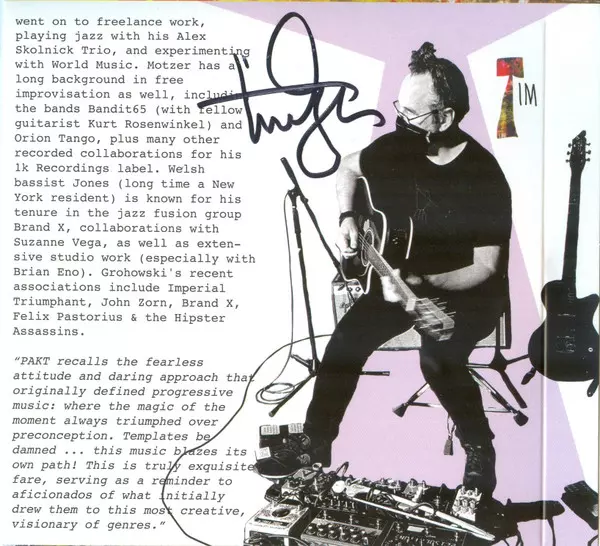 went on to freelance work,
playing jazz with his Alex
Skolnick Trio, and experimenting
with World Music. Motzer has a
long background in free
improvisation as well, including
the bands Bandit65 (with fellow
guitarist Kurt Rosenwinkel) and
Orion Tango, plus many other
recorded collaborations for his
1k Recordings label. Welsh
bassist Jones (long time a New
York resident) is known for his
tenure in the jazz fusion group
Brand X, collaborations with
Suzanne Vega, as well as exten-
sive studio work (especially with
Brian Eno). Grohowski's recent
associations include Imperial
Triumphant, John Zorn, Brand X,
Felix Pastorius & the Hipster
Assassins.
“PAKT recalls the fearless
attitude and daring approach that
originally defined progressive
music: where the magic of the
moment always triumphed over
preconception. Templates be
damned ... this music blazes its
own path! This is truly exquisite
fare, serving as a reminder to
aficionados of what initially
drew them to this most creative,
visionary of genres.”
TIM